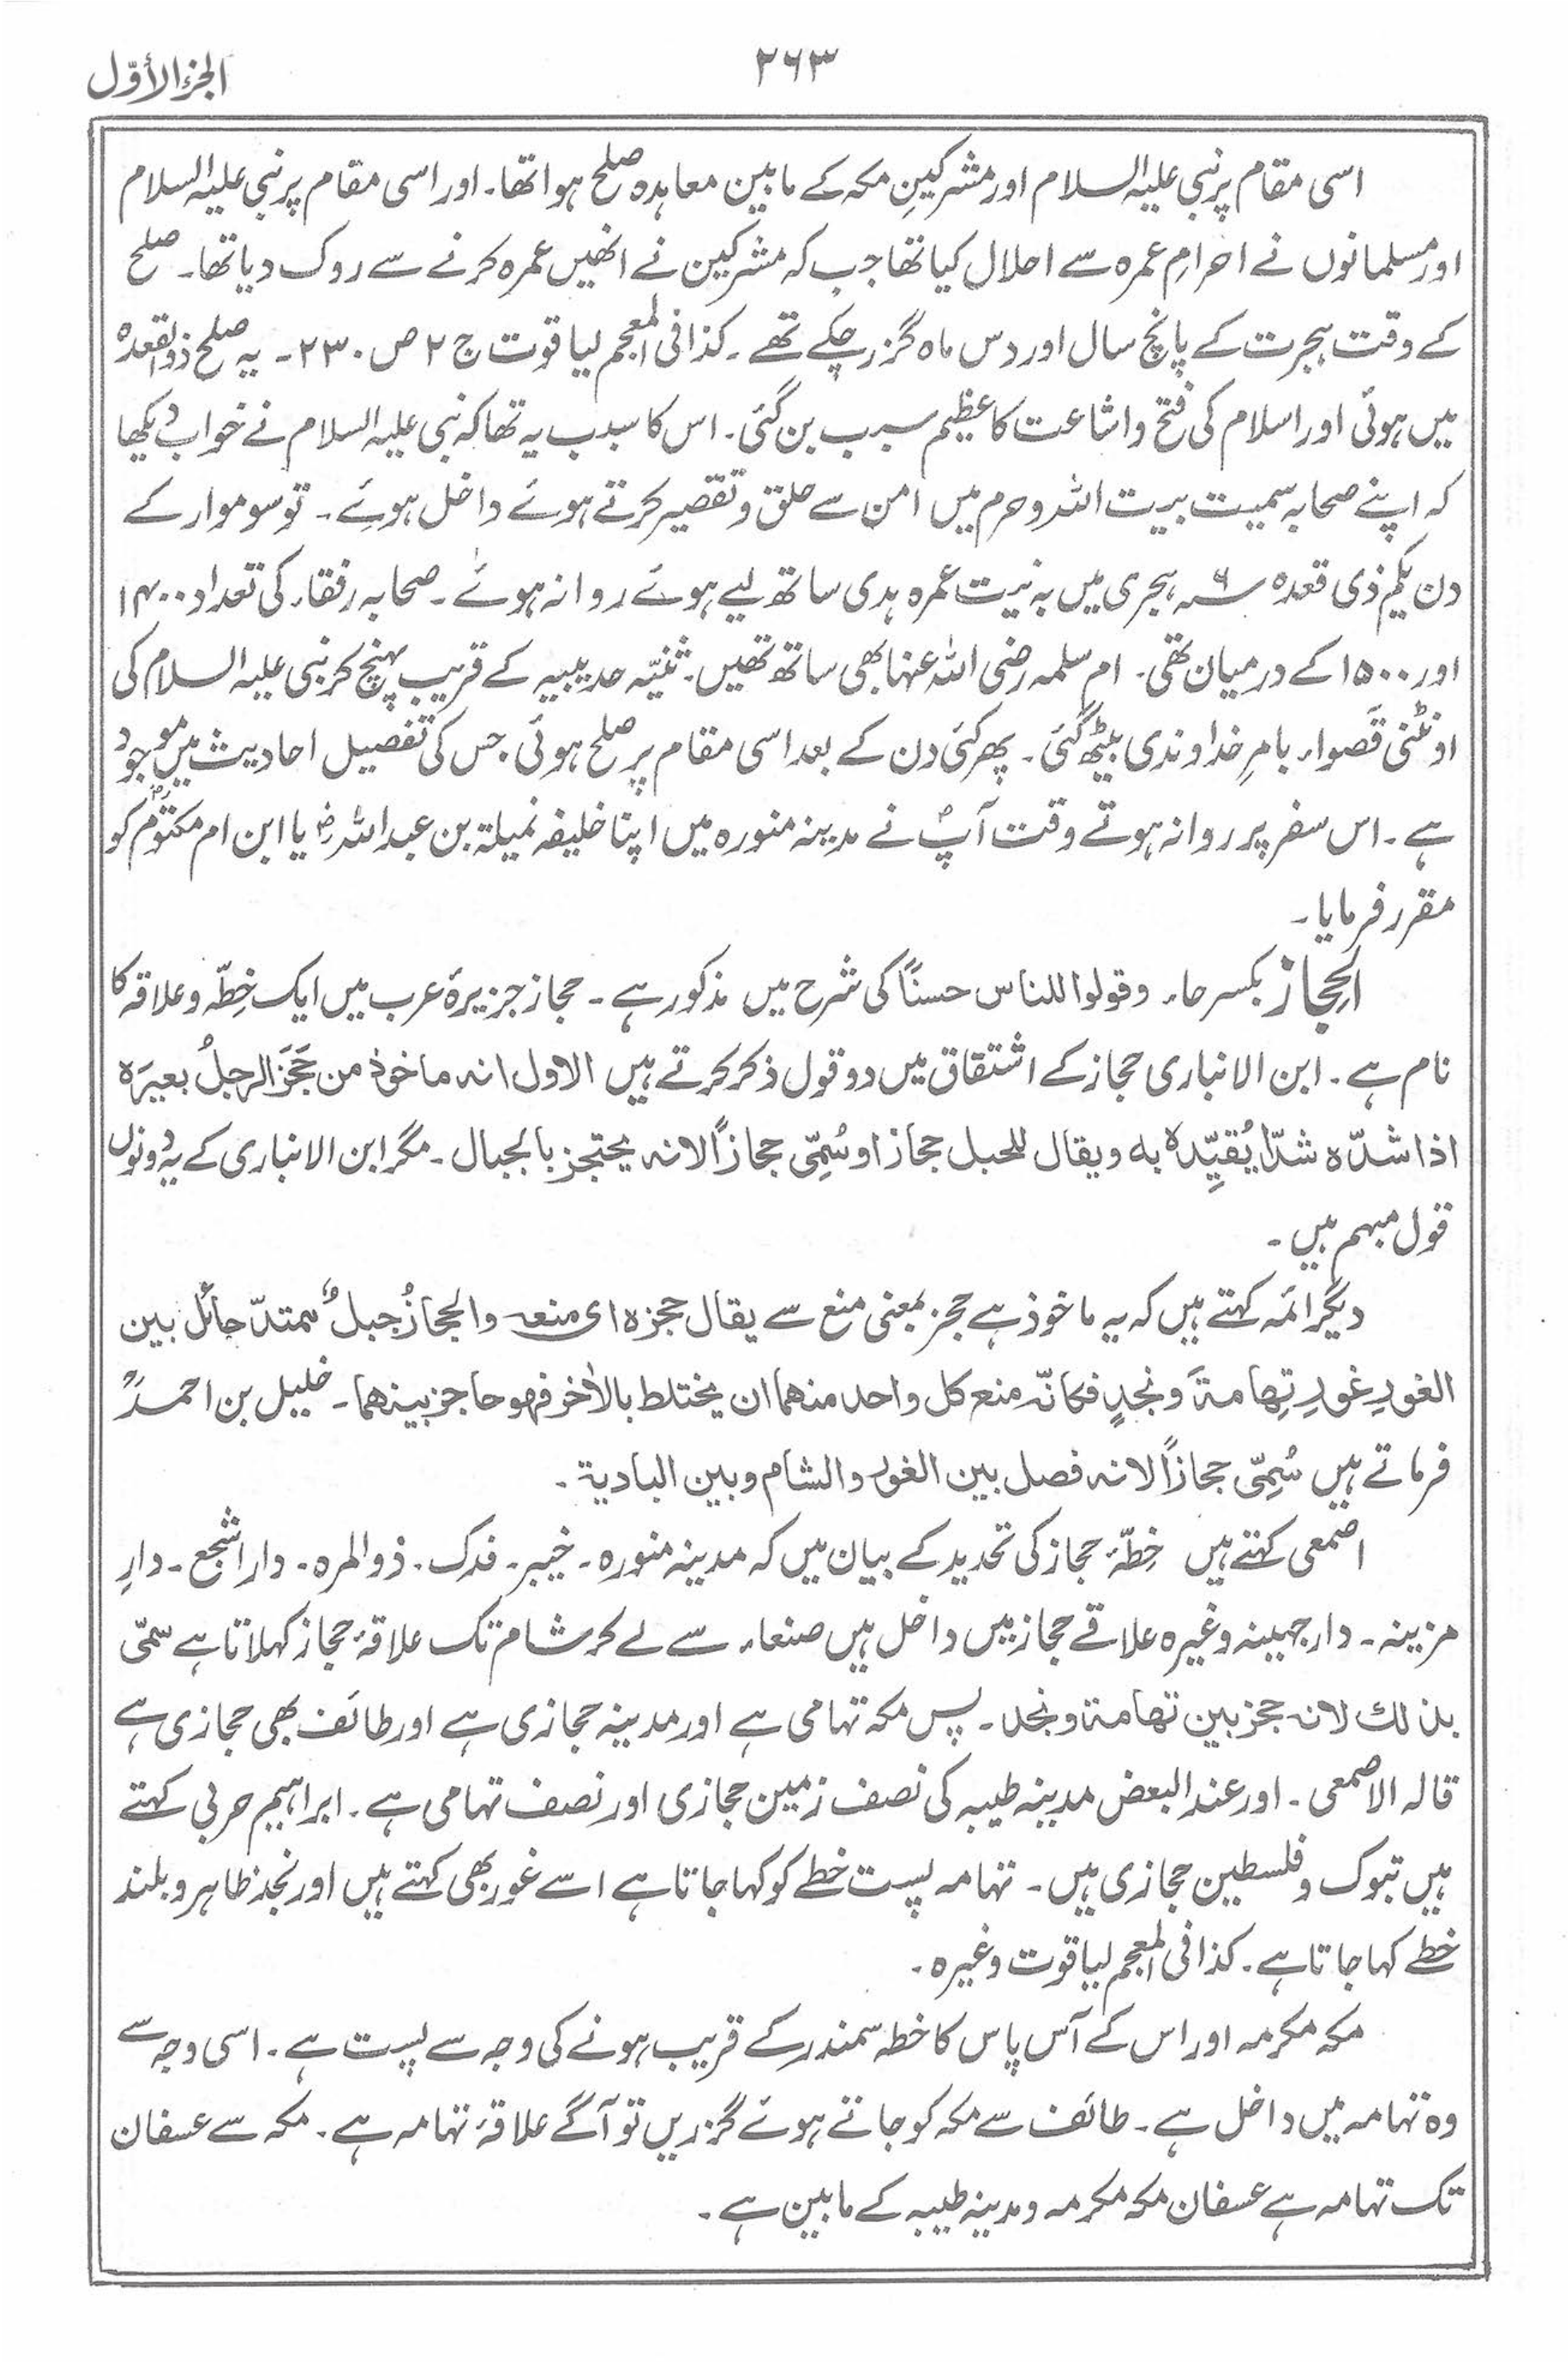 الجزء الأوّل
۲۶۳
اسی مقام پر نبی علیہ السلام اور مشرکینِ مکہ کے مابین معاہدہ صلح ہوا تھا۔ اور اسی مقام پر نبی علیہ السلام
اور مسلمانوں نے احرامِ عمرہ سے احلال کیا تھا جب کہ مشرکین نے انھیں عمرہ کرنے سے روک دیا تھا۔ صلح
کے وقت ہجرت کے پانچ سال اور دس ماہ گزر چکے تھے۔ کذا فی المعجم لیاقوت ج ۲ ص ۲۳۰۔ یہ صلح ذوالقعدہ
میں ہوئی اور اسلام کی فتح و اشاعت کا عظیم سبب بن گئی۔ اس کا سبب یہ تھا کہ نبی علیہ السلام نے خواب دیکھا
کہ اپنے صحابہ سمیت بیت اللہ و حرم میں امن سے حلق و تقصیر کرتے ہوئے داخل ہوئے۔ تو سوموار کے
دن یکم ذی قعدہ ۶ سنہ ہجری میں بہ نیت عمرہ ہدی ساتھ لیے ہوئے روانہ ہوئے۔ صحابہ رفقاء کی تعداد ۱۴۰۰
اور ۱۵۰۰ کے درمیان تھی۔ ام سلمہ رضی اللہ عنہا بھی ساتھ تھیں۔ ثنیّہ حدیبیہ کے قریب پہنچ کر نبی علیہ السلام کی
اونٹنی قَصواء بامرِ خداوندی بیٹھ گئی۔ پھر کئی دن کے بعد اسی مقام پر صلح ہوئی جس کی تفصیل احادیث میں موجود
ہے۔ اس سفر پر روانہ ہوتے وقت آپؐ نے مدینہ منورہ میں اپنا خلیفہ نمیلۃ بن عبداللہؓ یا ابن ام مکتومؓ کو
مقرر فرمایا۔
الحِجاز بکسر حاء۔ وقولوا للناس حسنًا کی شرح میں مذکور ہے۔ حجاز جزیرۂ عرب میں ایک خِطّہ و علاقہ کا
نام ہے۔ ابن الانباری حجاز کے اشتقاق میں دو قول ذکر کرتے ہیں الاول انہ ماخوذ من حَجَزَ الرجلُ بعیرَہ
اذا شدّہ شدًّا یُقیِّدہ بہ ویقال للحبل حجاز او سُمِّی حجازًا لانہ یحتجز بالجبال۔ مگر ابن الانباری کے یہ دونوں
قول مبہم ہیں۔
دیگر ائمہ کہتے ہیں کہ یہ ماخوذ ہے حجز بمعنی منع سے یقال حجزہ ای منعہ والحجازُ جبلٌ ممتدّ حائل بین
الغورِ غورِ تِهامۃَ ونجدٍ فکانّہ منع کل واحد منھما ان یختلط بالآخر فهو حاجز بینهما۔ خلیل بن احمدؒ
فرماتے ہیں سُمِّی حجازًا لانہ فصل بین الغور والشام وبین البادیۃ۔
اصمعی کہتے ہیں خِطّۂ حجاز کی تحدید کے بیان میں کہ مدینہ منورہ۔ خیبر۔ فدک۔ ذوالمرہ۔ دار اشجع۔ دارِ
مزینہ۔ دار جہینہ وغیرہ علاقے حجاز میں داخل ہیں صنعاء سے لے کر شام تک علاقۂ حجاز کہلاتا ہے سمّی
بذٰلك لانہ حجز بین تهامۃ ونجد۔ پس مکہ تہامی ہے اور مدینہ حجازی ہے اور طائف بھی حجازی ہے
قالہ الاصمعی۔ اور عند البعض مدینہ طیبہ کی نصف زمین حجازی اور نصف تہامی ہے۔ ابراہیم حربی کہتے
ہیں تبوک و فلسطین حجازی ہیں۔ تہامہ پست خطے کو کہا جاتا ہے اسے غور بھی کہتے ہیں اور نجد ظاہر و بلند
خطے کہا جاتا ہے۔ کذا فی المعجم لیاقوت وغیرہ۔
مکہ مکرمہ اور اس کے آس پاس کا خطہ سمندر کے قریب ہونے کی وجہ سے پست ہے۔ اسی وجہ سے
وہ تہامہ میں داخل ہے۔ طائف سے مکہ کو جاتے ہوئے گزریں تو آگے علاقۂ تہامہ ہے۔ مکہ سے عسفان
تک تہامہ ہے عسفان مکہ مکرمہ و مدینہ طیبہ کے مابین ہے۔